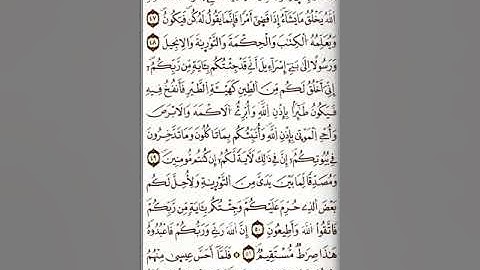 اُللَّهُ يَخْلُقُ مَا يَشَآءُ إِذَا قَضَىٰٓ أَمْرًا فَإِنَّمَا يَقُولُ لَهُۥ كُن فَيَكُونُ ٤٧
وَيُعَلِّمُهُ اُلْكِتَٰبَ وَالْحِكْمَةَ وَالتَّوْرَىٰةَ وَالِانجِيلَ ٤٨
وَرَسُولًا اِلَىٰ بَنِےٓ إِسْرَآءِيلَ أَنِّے قَدْ جِئْتُكُم بِـَٔايَةٍ مِّن رَّبِّكُمُۥٓ
إِنِّيَ أَخْلُقُ لَكُم مِّنَ اَلطِّينِ كَهَيْـَٔةِ اِلطَّيْرِ فَأَنفُخُ فِيهِ
فَيَكُونُ طَٰٓئِراً بِإِذْنِ اِللَّهِ وَأُبْرِئُ اُلَاكْمَهَ وَالَابْرَصَ
وَأُحْيِ اِلْمَوْتَىٰ بِإِذْنِ اِللَّهِ وَأُنَبِّئُكُم بِمَا تَاكُلُونَ وَمَا تَدَّخِرُونَ
فِے بُيُوتِكُمُۥٓ إِنَّ فِے ذَٰلِكَ لَأٓيَةً لَّكُمُۥٓ إِن كُنتُم مُّومِنِينَ ٤٩
وَمُصَدِّقًا لِّمَا بَيْنَ يَدَيَّ مِنَ اَلتَّوْرَىٰةِ وَلِأُحِلَّ لَكُم
بَعْضَ اَلذِے حُرِّمَ عَلَيْكُمْ وَجِئْتُكُم بِـَٔايَةٍ مِّن رَّبِّكُمْ
فَاتَّقُوا اُللَّهَ وَأَطِيعُونِ ٥٠ إِنَّ اَللَّهَ رَبِّے وَرَبُّكُمْ فَاعْبُدُوهُ
هَٰذَا صِرَٰطٌ مُّسْتَقِيمٌ ٥١ فَلَمَّآ أَحَسَّ عِيسَىٰ مِنْهُمُ